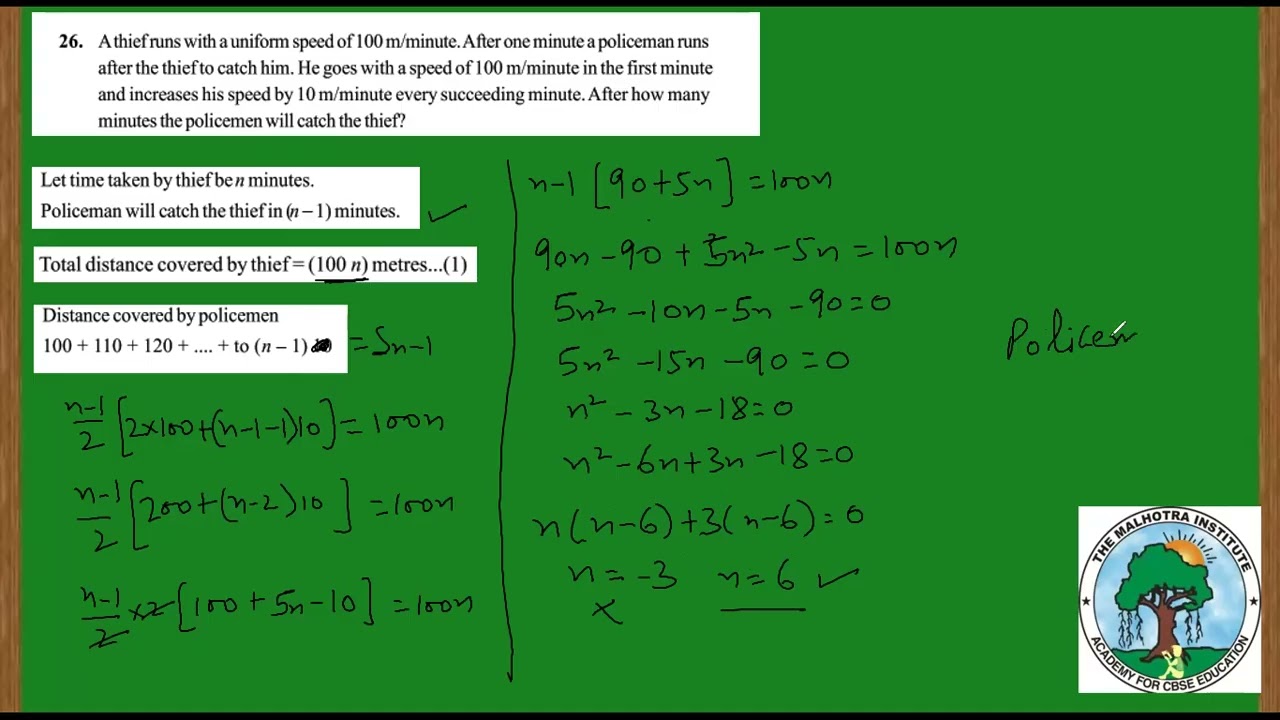 26. A thief runs with a uniform speed of 100 m/minute. After one minute a policeman runs
after the thief to catch him. He goes with a speed of 100 m/minute in the first minute
and increases his speed by 10 m/minute every succeeding minute. After how many
minutes the policemen will catch the thief?
Let time taken by thief be n minutes.
Policeman will catch the thief in (n – 1) minutes. ✓
Total distance covered by thief = (100 n) metres...(1)
Distance covered by policemen
100 + 110 + 120 + .... + to (n – 1) = Sn-1
n-1/2 [2×100+(n-1-1)10] = 100n
n-1/2 [200+(n-2)10] = 100n
n-1/2 ×2 [100 + 5n - 10] = 100n
n-1 [90+5n] = 100n
90n - 90 + 5n² - 5n = 100n
5n² - 10n - 5n - 90 = 0
5n² - 15n - 90 = 0
n² - 3n - 18 = 0
n² - 6n + 3n - 18 = 0
n(n-6) + 3(n-6) = 0
n = -3 n = 6 ✓
×
Policem
THE MALHOTRA INSTITUTE
ACADEMY FOR CBSE EDUCATION